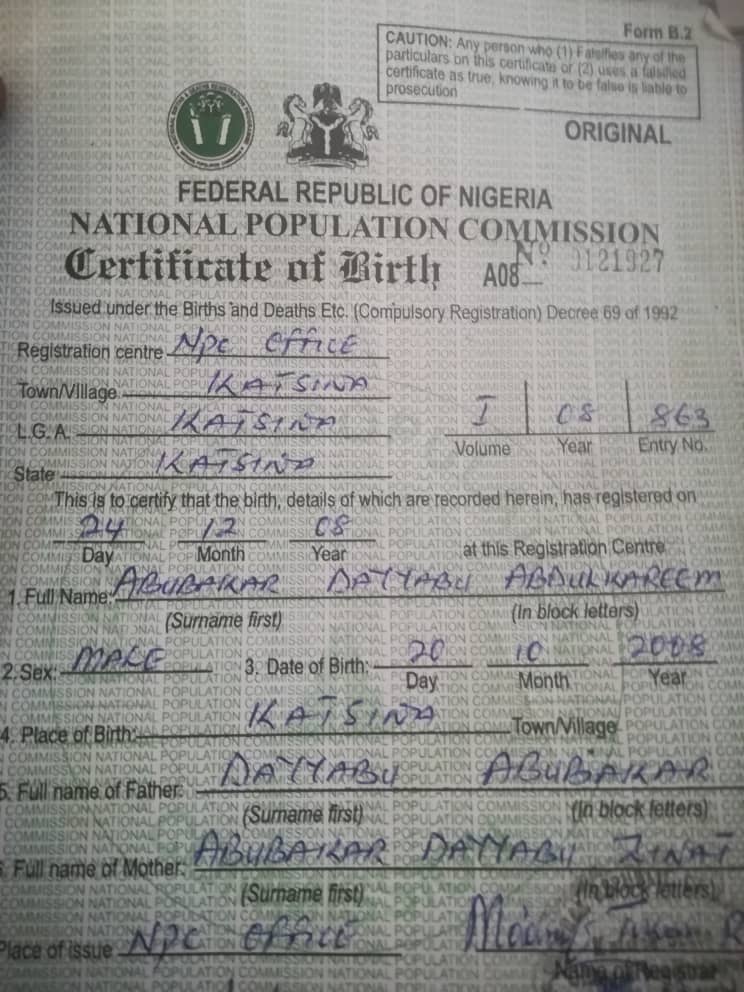 Form B.2
CAUTION: Any person who (1) Falsifies any of the
particulars on this certificate or (2) uses a falsified
certificate as true, knowing it to be false is liable to
prosecution
ORIGINAL
FEDERAL REPUBLIC OF NIGERIA
NATIONAL POPULATION COMMISSION
Certificate of Birth A08 No 0121927
Issued under the Births and Deaths Etc. (Compulsory Registration) Decree 69 of 1992
Registration centre NPC OFFICE
Town/Village KATSINA
L.G.A. KATSINA
I 08 863
Volume Year Entry No.
State KATSINA
This is to certify that the birth, details of which are recorded herein, has registered on
24 12 08
Day Month Year at this Registration Centre
1. Full Name: ABUBAKAR DAYYABU ABDULKAREEM
(Surname first) (In block letters)
2. Sex: MALE 3. Date of Birth: 20 10 2008
Day Month Year
4. Place of Birth: KATSINA Town/Village
5. Full name of Father: DAYYABU ABUBAKAR
(Surname first) (In block letters)
Full name of Mother: ABUBAKAR DAYYABU ZINAT
(Surname first) (In block letters)
Place of issue NPC OFFICE
Name of Registrar